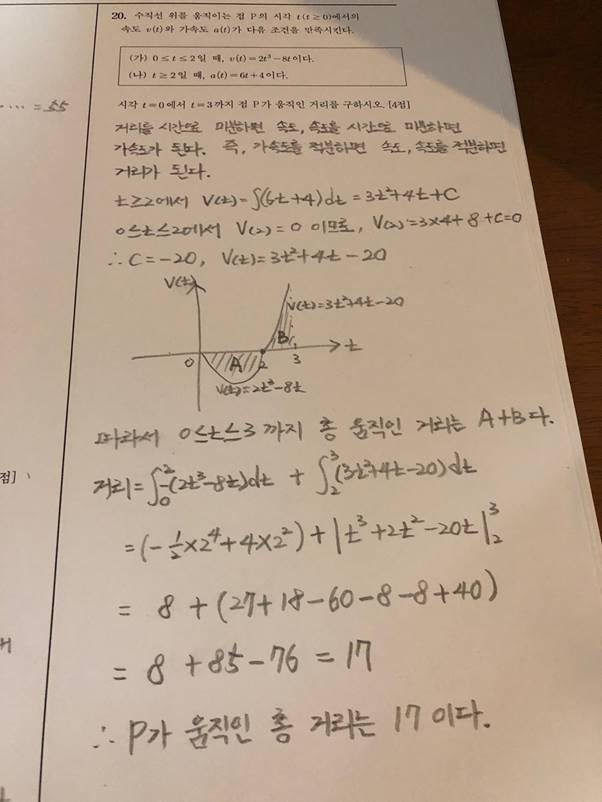 20. 수직선 위를 움직이는 점 P의 시각 t(t≥0)에서의
속도 v(t)와 가속도 a(t)가 다음 조건을 만족시킨다.
(가) 0≤t≤2일 때, v(t)=2t³-8t이다.
(나) t≥2일 때, a(t)=6t+4이다.
시각 t=0에서 t=3까지 점 P가 움직인 거리를 구하시오. [4점]
... = 55
거리를 시간으로 미분하면 속도, 속도를 시간으로 미분하면
가속도가 된다. 즉, 가속도를 적분하면 속도, 속도를 적분하면
거리가 된다.
t≥2에서 V(t)=∫(6t+4)dt=3t²+4t+C
0≤t≤2에서 V(2)=0 이므로, V(2)=3×4+8+C=0
∴ C=-20, V(t)=3t²+4t-20
V(t)
V(t)=3t²+4t-20
B
0 A 2 3 t
V(t)=2t³-8t
따라서 0≤t≤3 까지 총 움직인 거리는 A+B다.
점]
거리=∫₀²-(2t³-8t)dt + ∫₂³(3t²+4t-20)dt
=(-½×2⁴+4×2²)+|t³+2t²-20t|₂³
= 8 +(27+18-60-8-8+40)
= 8 +85-76 = 17
∴ P가 움직인 총 거리는 17이다.